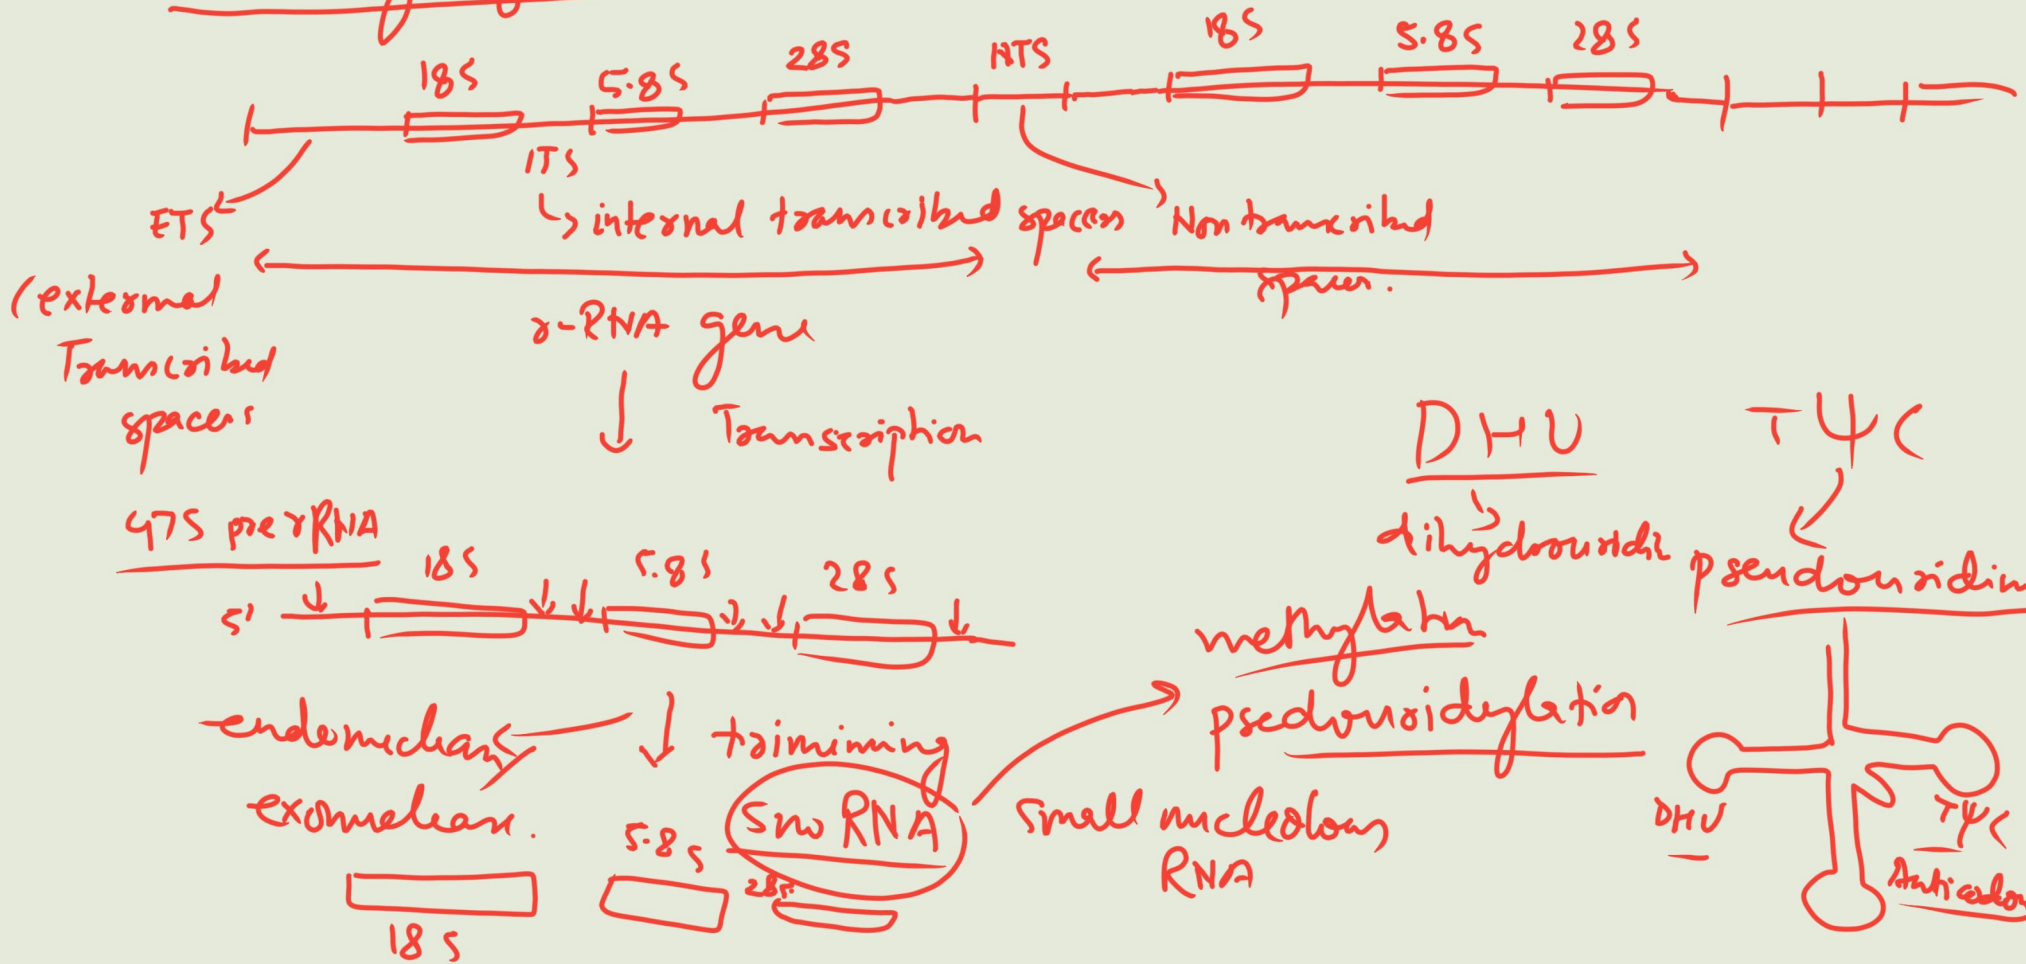 18S 5.8S 28S NTS 18S 5.8S 28S
ITS
ETS
↳ internal transcribed spacers
Non transcribed
spacer.
(external
Transcribed
spacers
r-RNA gene
Transcription
DHU
TΨC
47S pre rRNA
dihydrouridin
pseudouridin
5'
18S 5.8S 28S
methylation
psedouridylation
endonuclease
trimiming
exonuclease.
sno RNA
small nucleolous
RNA
DHU
TΨC
Anticodon
5.8S
28S
18S